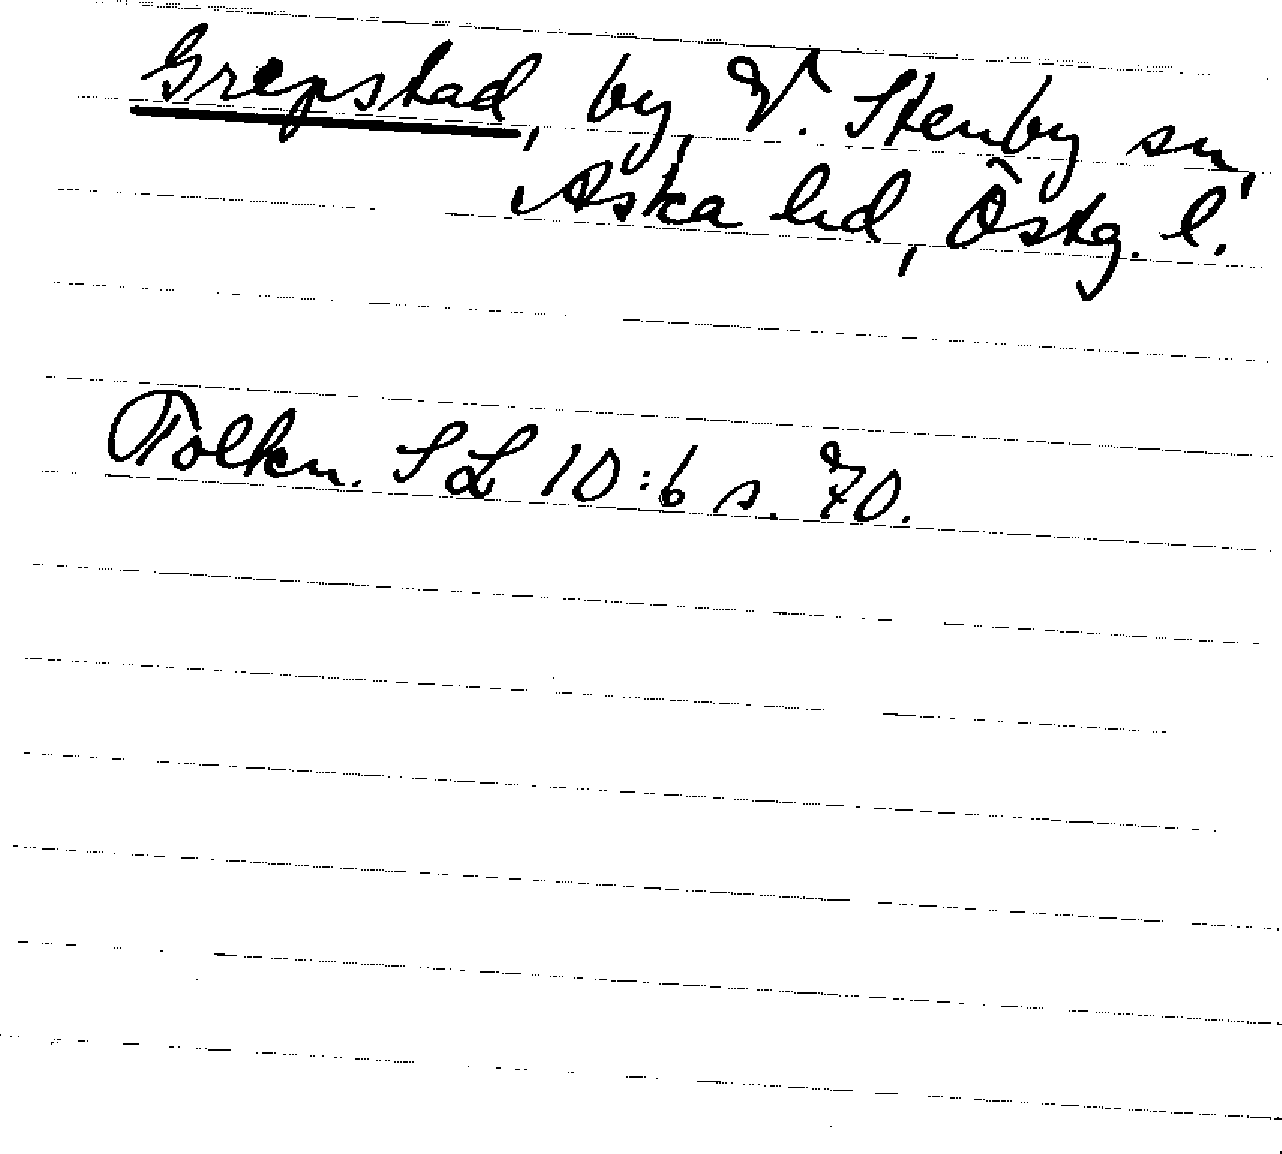 Grepstad, by, V. Stenby sn,
Aska hd, Östg. l.
Tolkn. SL 10:6 s. 70.